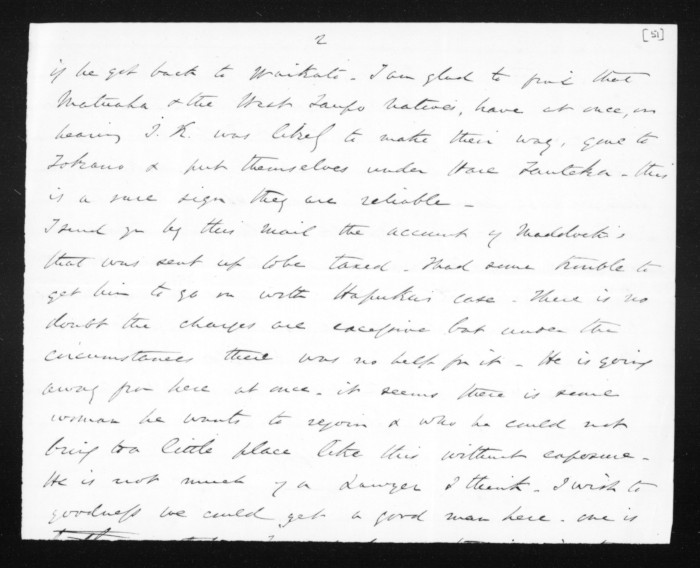 2
[51]
if he got back to Waikato - I am glad to find that
Matuaha & the West Taupo Natives, have at once, on
hearing T. K. was likely to make their way, gone to
Tokano & put themselves under Hare Tauteka - this
is a sure sign they are reliable -
I send you by this mail the account of Maddock's
that was sent up to be taxed - Had some trouble to
get him to go on with Hapuku's case - There is no
doubt the charges are excessive but under the
circumstances there was no help for it - He is going
away from here at once - it seems there is some
woman he wants to rejoin & who he could not
bring to a little place like this without exposure -
He is not much of a Lawyer I think - I wish to
goodness we could get a good man here - one is